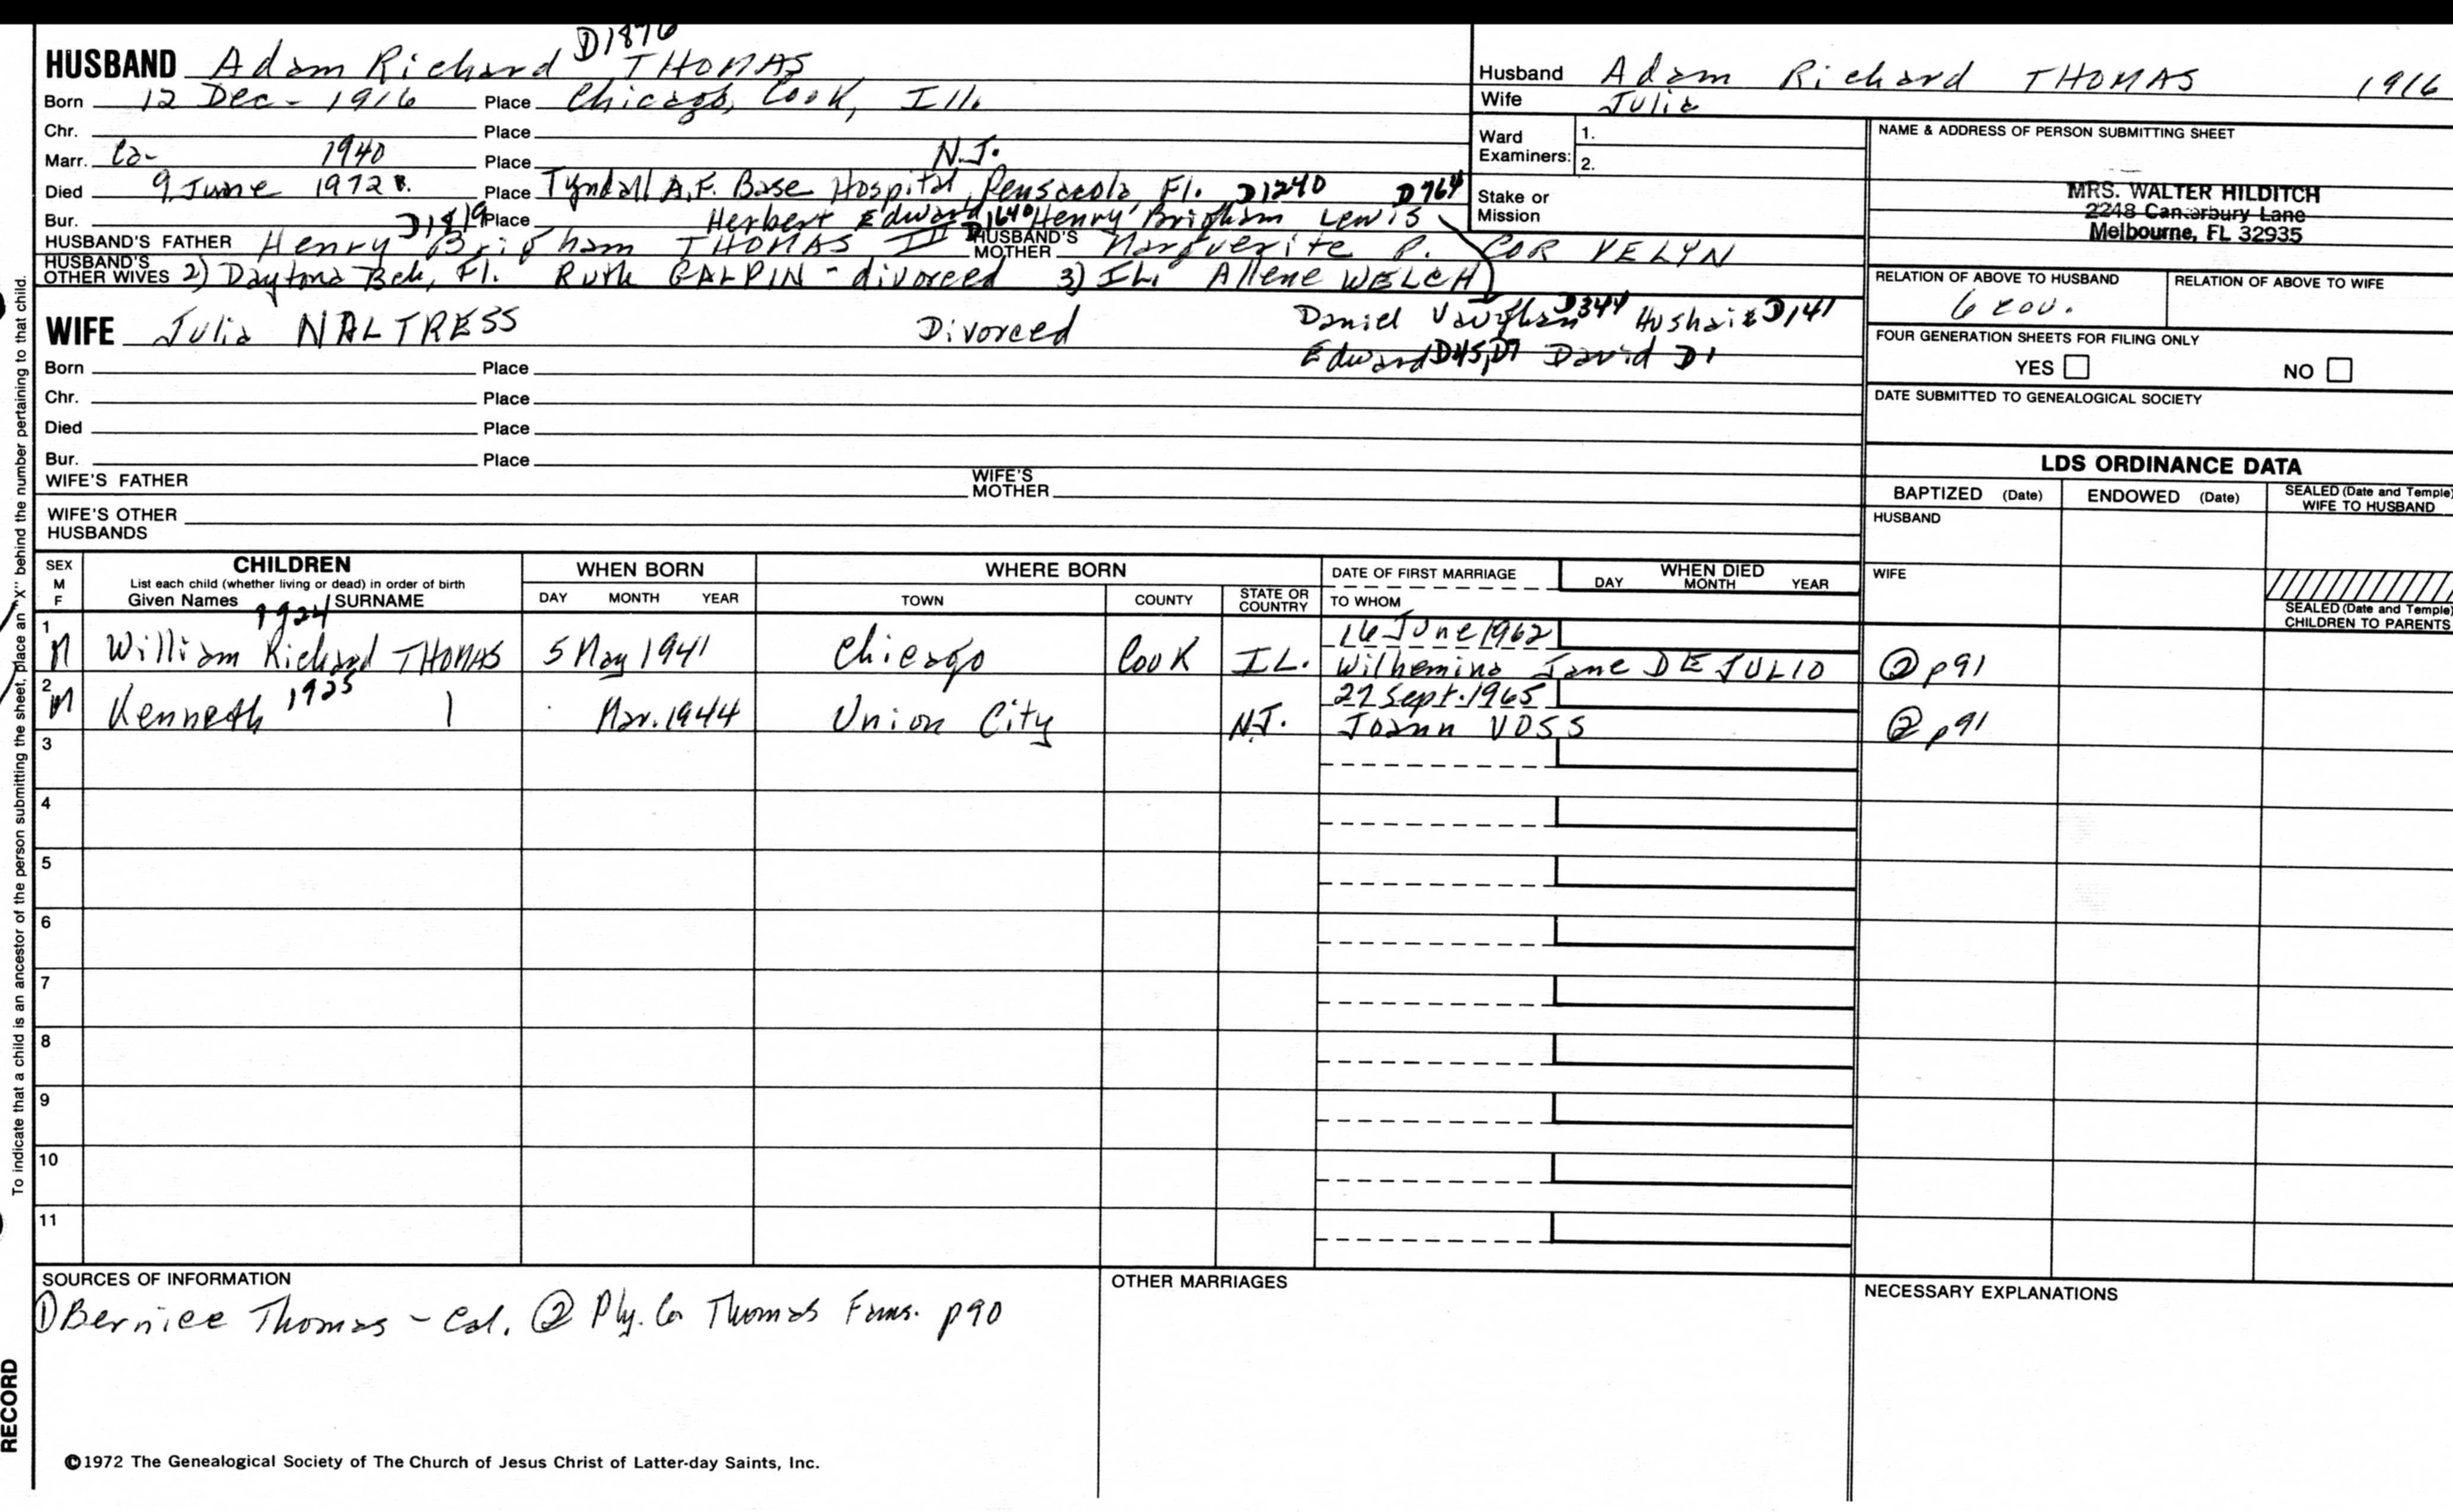 D1876
HUSBAND Adam Richard THOMAS
Born 12 Dec - 1916 Place Chicago, Cook, Ill.
Chr. Place
Marr. Ca- 1940 Place N.J.
Died 9 June 1972 Place Tyndall A.F. Base Hospital, Pensacola, Fl. D1240 D764
Bur. D1819 Place Herbert Edward D1640 Henry Brigham Lewis
HUSBAND'S FATHER Henry Brigham THOMAS III HUSBAND'S MOTHER Marguerite P. COR VELYN
HUSBAND'S OTHER WIVES 2) Daytona Bch, Fl. Ruth GALPIN - divorced 3) IL. Allene WELCH
WIFE Julia NALTRESS Divorced Daniel Vaughan D344 Hushai D141
Edward D45, D7 David D1
Born Place
Chr. Place
Died Place
Bur. Place
WIFE'S FATHER WIFE'S MOTHER
WIFE'S OTHER HUSBANDS
Husband Adam Richard THOMAS 1916
Wife Julia
Ward Examiners: 1.
2.
Stake or Mission
NAME & ADDRESS OF PERSON SUBMITTING SHEET
MRS. WALTER HILDITCH
2248 Canterbury Lane
Melbourne, FL 32935
RELATION OF ABOVE TO HUSBAND RELATION OF ABOVE TO WIFE
6 cou.
FOUR GENERATION SHEETS FOR FILING ONLY
YES NO
DATE SUBMITTED TO GENEALOGICAL SOCIETY
LDS ORDINANCE DATA
BAPTIZED (Date) ENDOWED (Date) SEALED (Date and Temple) WIFE TO HUSBAND
HUSBAND
WIFE
SEALED (Date and Temple) CHILDREN TO PARENTS
SEX M F CHILDREN List each child (whether living or dead) in order of birth Given Names SURNAME WHEN BORN DAY MONTH YEAR WHERE BORN TOWN COUNTY STATE OR COUNTRY DATE OF FIRST MARRIAGE TO WHOM WHEN DIED DAY MONTH YEAR
1924
1 M William Richard THOMAS 5 May 1941 Chicago Cook IL. 16 June 1962 Wilhemina Jane DE JULIO ② p91
1925
2 M Kenneth Mar. 1944 Union City N.J. 27 Sept. 1965 Joann VOSS ② p91
3
4
5
6
7
8
9
10
11
SOURCES OF INFORMATION OTHER MARRIAGES NECESSARY EXPLANATIONS
① Bernice Thomas - Cal. ② Ply. Co Thomas Fams. p90
©1972 The Genealogical Society of The Church of Jesus Christ of Latter-day Saints, Inc.
To indicate that a child is an ancestor of the person submitting the sheet, place an "X" behind the number pertaining to that child.
RECORD